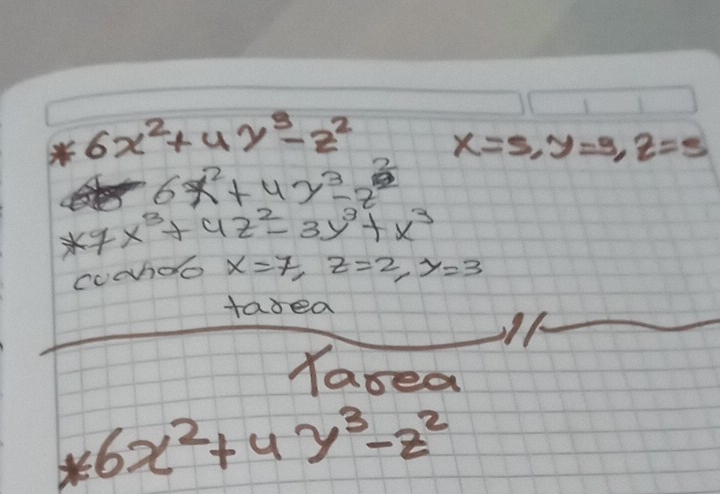 *6x²+4y³-z² x=5, y=3, z=5
6x²+4y³-z²
*7x³+4z²-3y³+x³
cuando x=7, z=2, y=3
tarea
Tarea
*6x²+4y³-z²